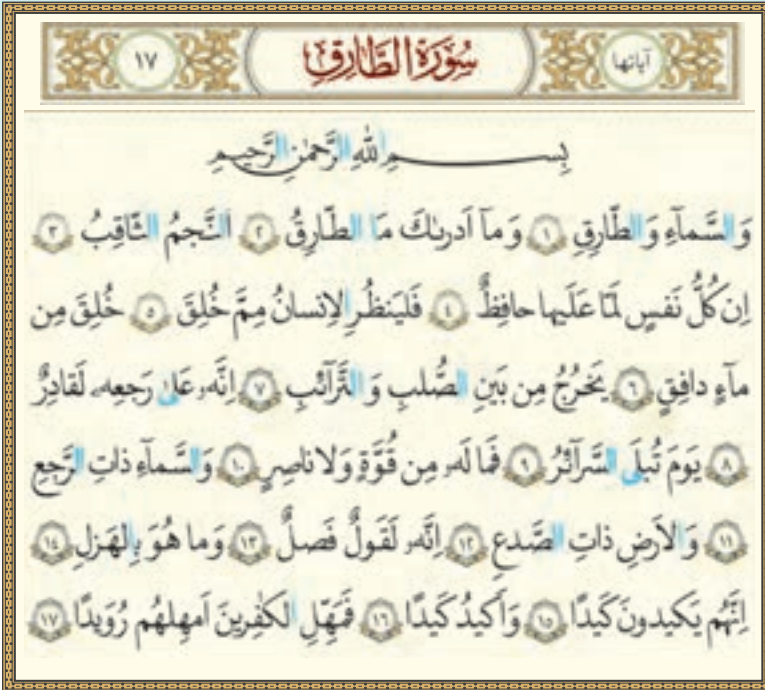 آیاتها سُورَةُ الطَّارِقِ ١٧
بِسمِ اللهِ الرَّحمٰنِ الرَّحيمِ
وَالسَّماءِ وَالطّارِقِ ﴿١﴾ وَما اَدرىٰكَ مَا الطّارِقُ ﴿٢﴾ اَلنَّجمُ الثّاقِبُ ﴿٣﴾
اِن كُلُّ نَفسٍ لَمّا عَلَيها حافِظٌ ﴿٤﴾ فَليَنظُرِ الاِنسانُ مِمَّ خُلِقَ ﴿٥﴾ خُلِقَ مِن
ماءٍ دافِقٍ ﴿٦﴾ يَخرُجُ مِن بَينِ الصُّلبِ وَ التَّرائبِ ﴿٧﴾ اِنَّهٗ عَلىٰ رَجعِهٖ لَقادِرٌ
﴿٨﴾ يَومَ تُبلَى السَّرائرُ ﴿٩﴾ فَما لَهٗ مِن قُوَّةٍ وَلا ناصِرٍ ﴿١٠﴾ وَالسَّماءِ ذاتِ الرَّجعِ
﴿١١﴾ وَالاَرضِ ذاتِ الصَّدعِ ﴿١٢﴾ اِنَّهٗ لَقَولٌ فَصلٌ ﴿١٣﴾ وَما هُوَ بِالهَزلِ ﴿١٤﴾
اِنَّهُم يَكيدونَ كَيدًا ﴿١٥﴾ وَاَكيدُ كَيدًا ﴿١٦﴾ فَمَهِّلِ الكٰفِرينَ اَمهِلهُم رُوَيدًا ﴿١٧﴾